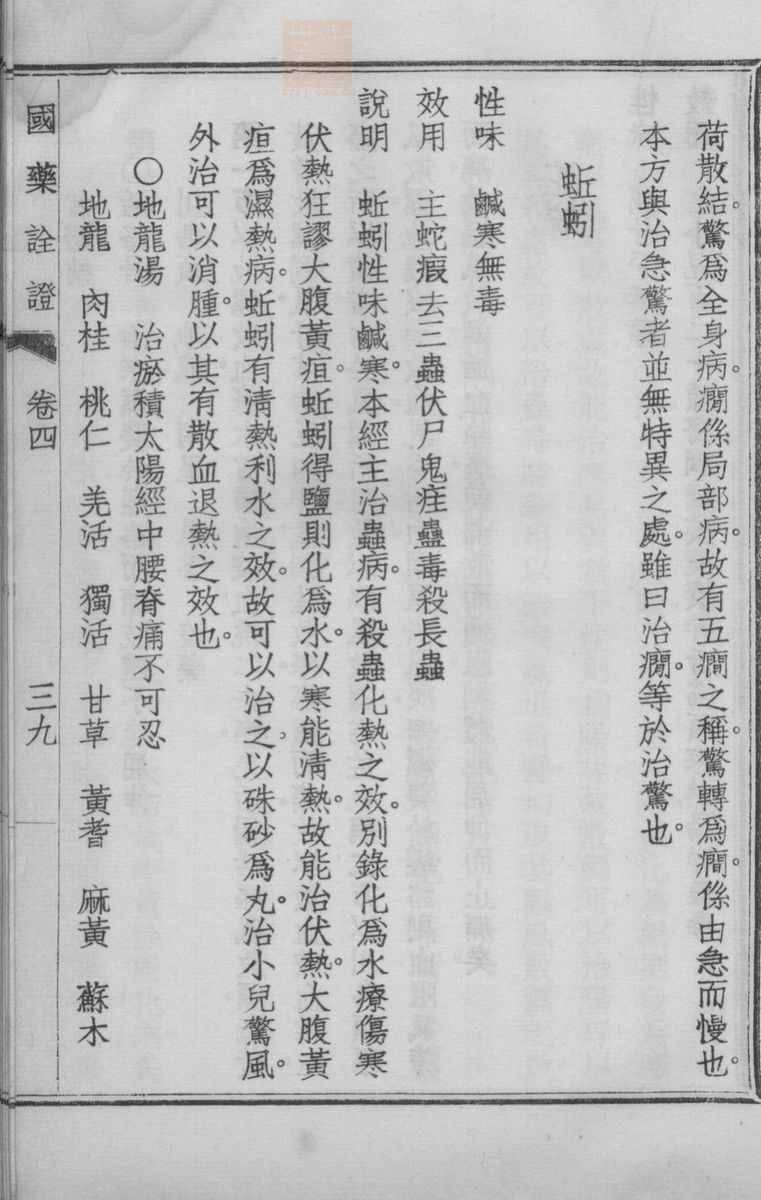 荷散結。驚爲全身病。癇係局部病。故有五癇之稱。驚轉爲癇。係由急而慢也。
本方與治急驚者並無特異之處。雖曰治癇。等於治驚也。
蚯蚓
性味　鹹寒無毒
效用　主蛇瘕去三蟲伏尸鬼疰蠱毒殺長蟲
說明　蚯蚓性味鹹寒。本經主治蟲病。有殺蟲化熱之效。別錄化爲水療傷寒
伏熱狂謬大腹黃疸。蚯蚓得鹽則化爲水。以寒能淸熱。故能治伏熱。大腹黃
疸爲濕熱病。蚯蚓有淸熱利水之效。故可以治之。以硃砂爲丸。治小兒驚風。
外治可以消腫。以其有散血退熱之效也。
〇地龍湯　治瘀積太陽經中腰脊痛不可忍
地龍　肉桂　桃仁　羌活　獨活　甘草　黃耆　麻黃　蘇木
國藥詮證　卷四　三九